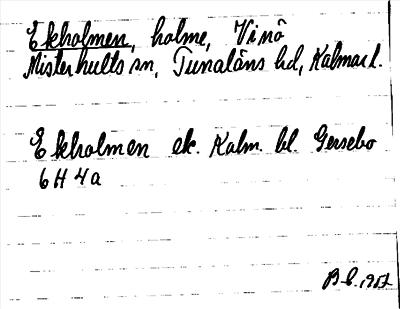 Ekholmen, holme, Vinö
Misterhults sn, Tunaläns hd, Kalmar l.
Ekholmen ek. Kalm. bl. Gersebo
6H 4a